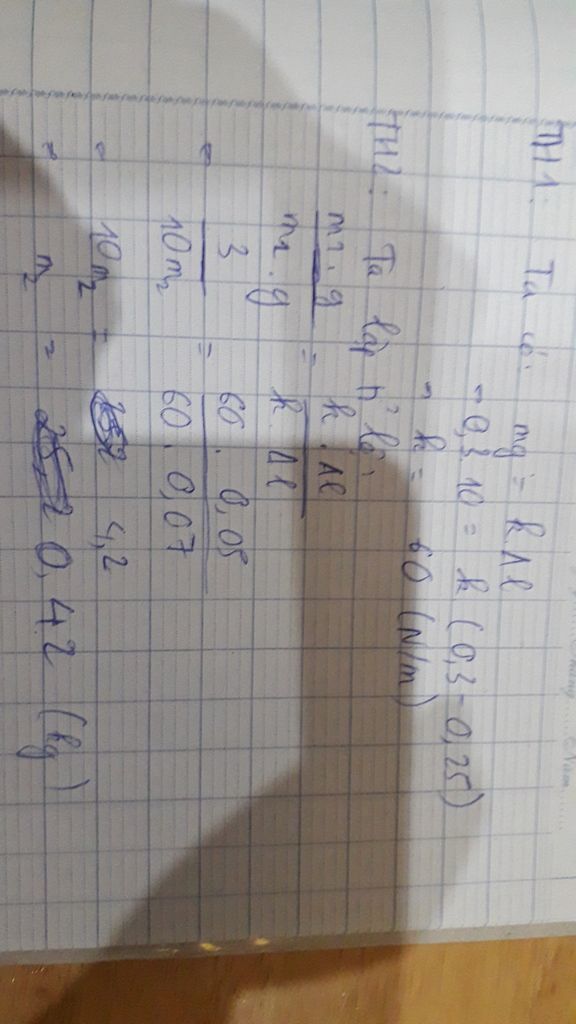 TH1: Ta có: mg = k.Δl
⇒ 0,3.10 = k (0,3 - 0,25)
⇒ k = 60 (N/m)
TH2: Ta lập tỉ lệ:
m1.g / m2.g = k.Δl / k.Δl
⇒ 3 / 10m2 = 60.0,05 / 60.0,07
⇒ 10m2 = 4,2
⇒ m2 = 0,42 (kg)